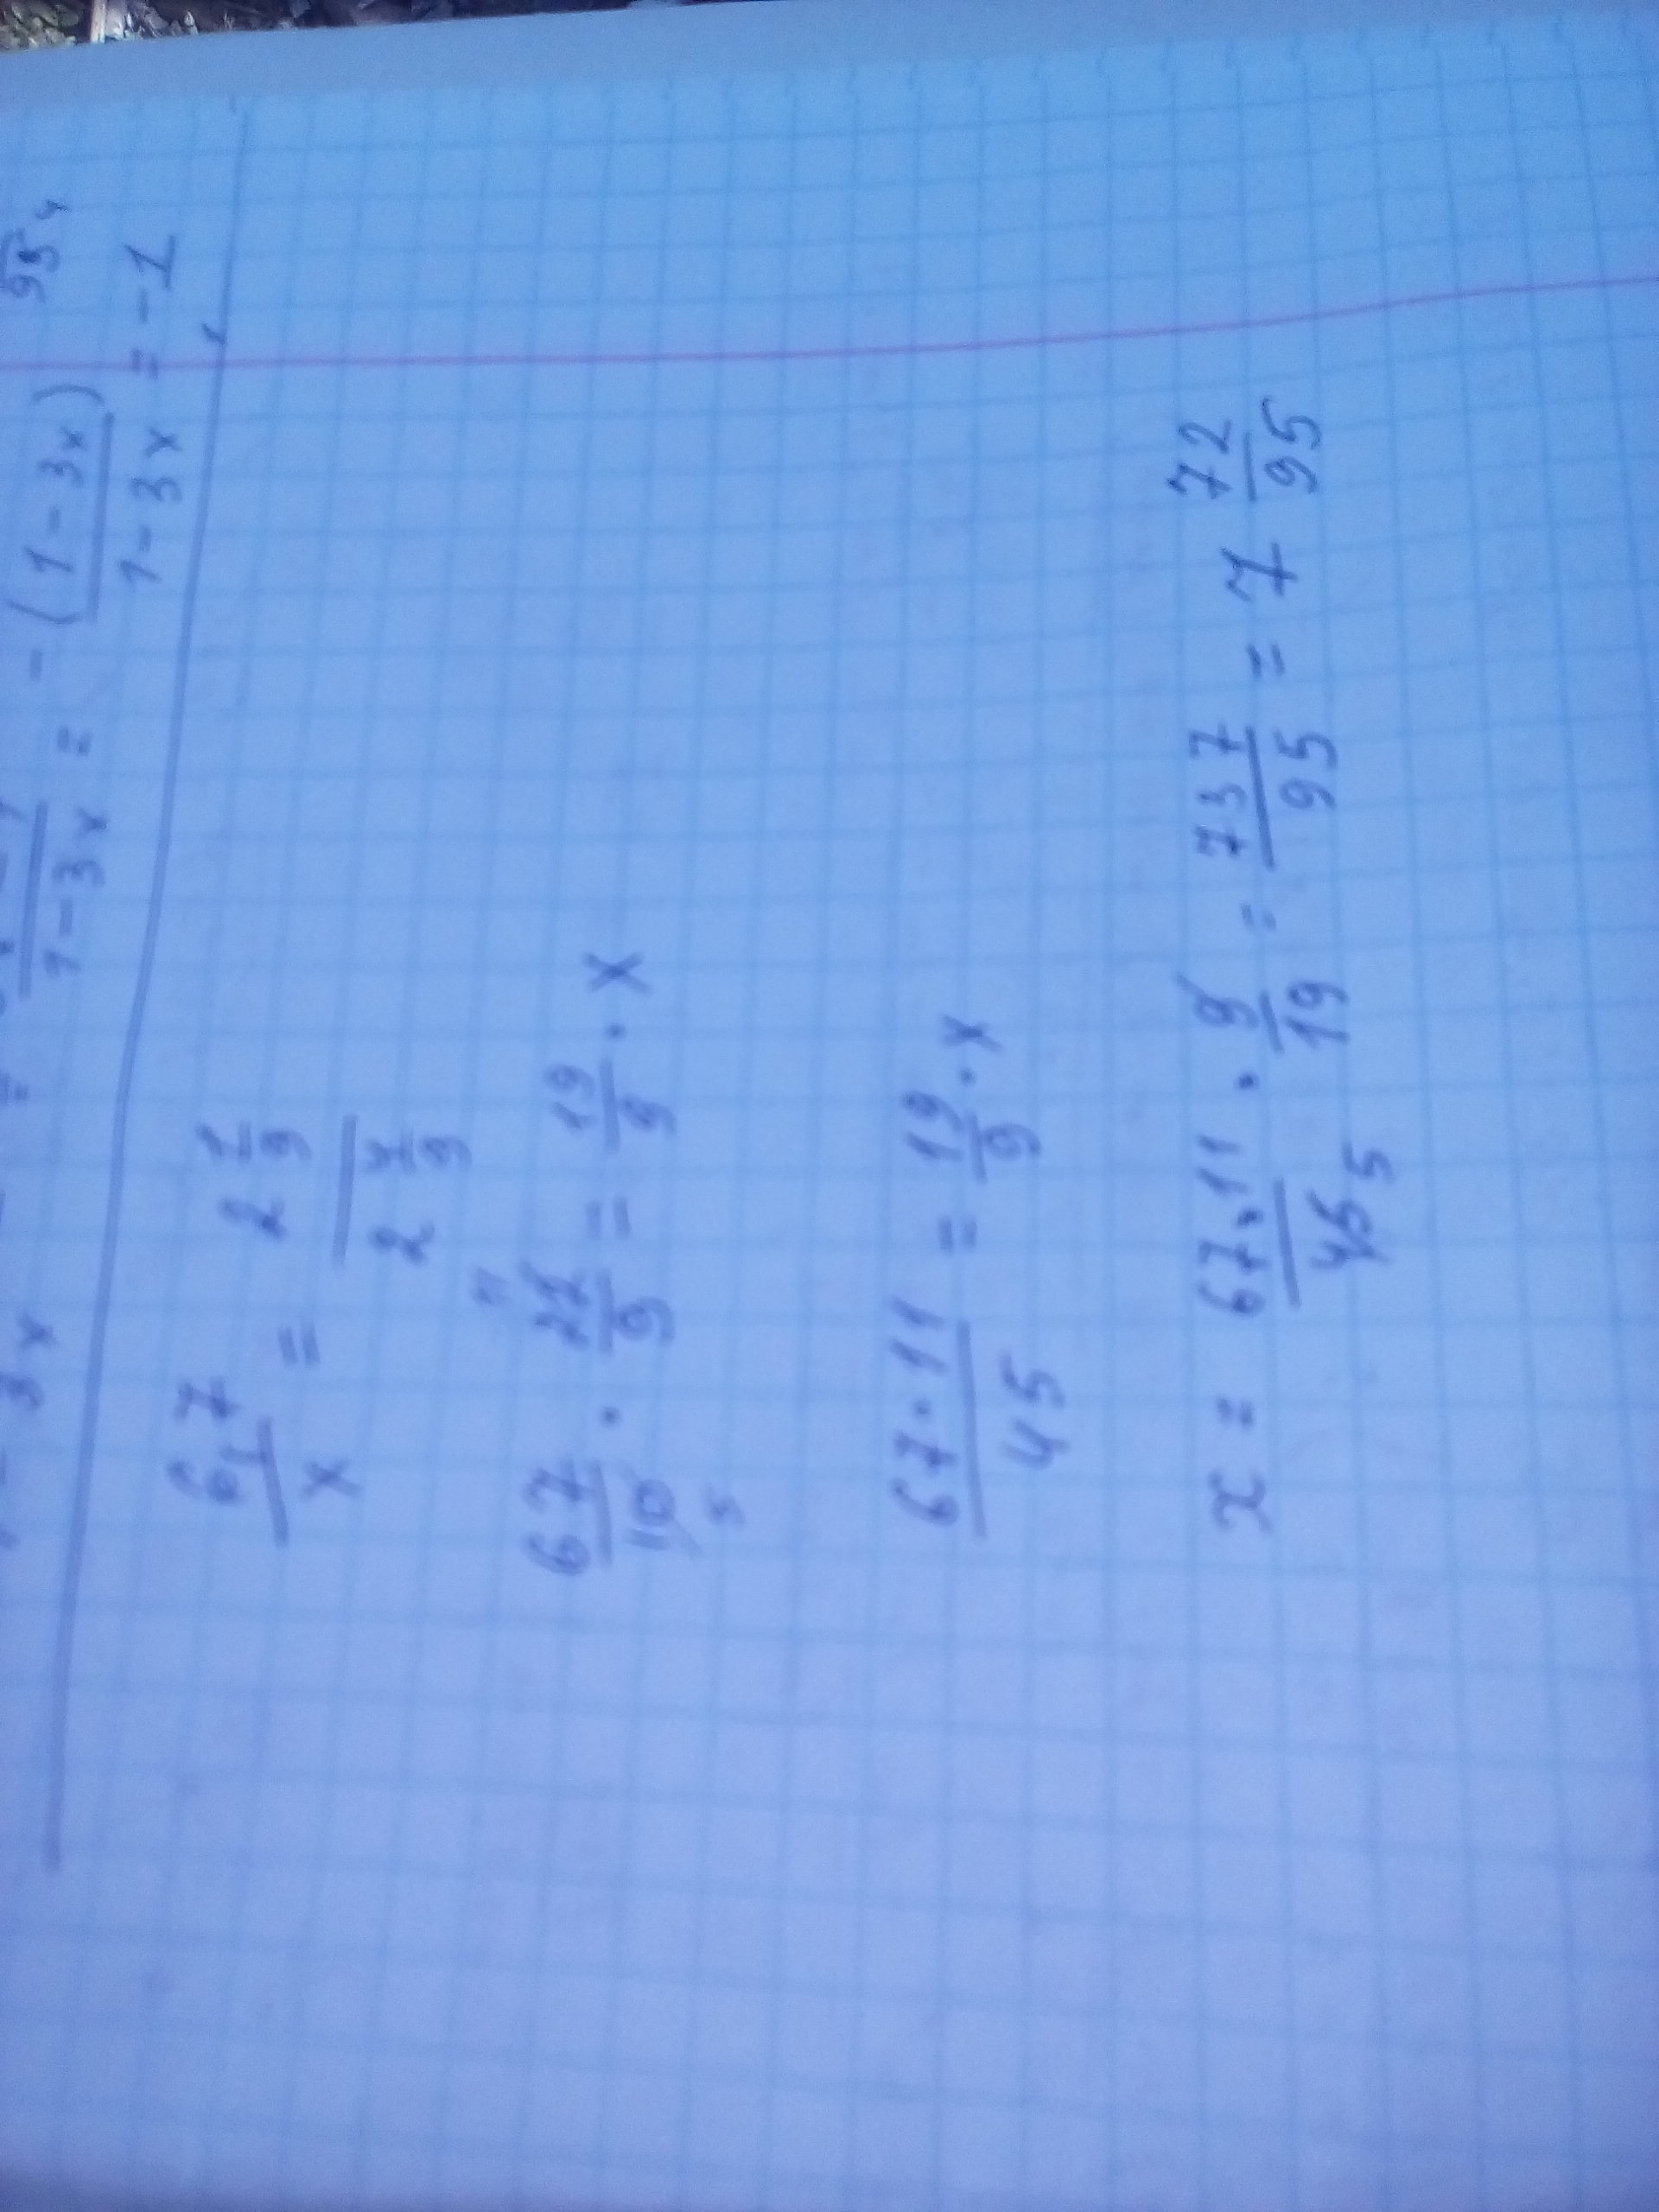 95
- 3x = 1-3x = -(1-3x)/1-3x = -1
6,7/x = 2 1/9 / 2 4/9
67/10 5 · 11 22/9 = 19/9 · x
67·11/45 = 19/9 · x
x = 67·11/45 5 · 9/19 = 737/95 = 7 72/95